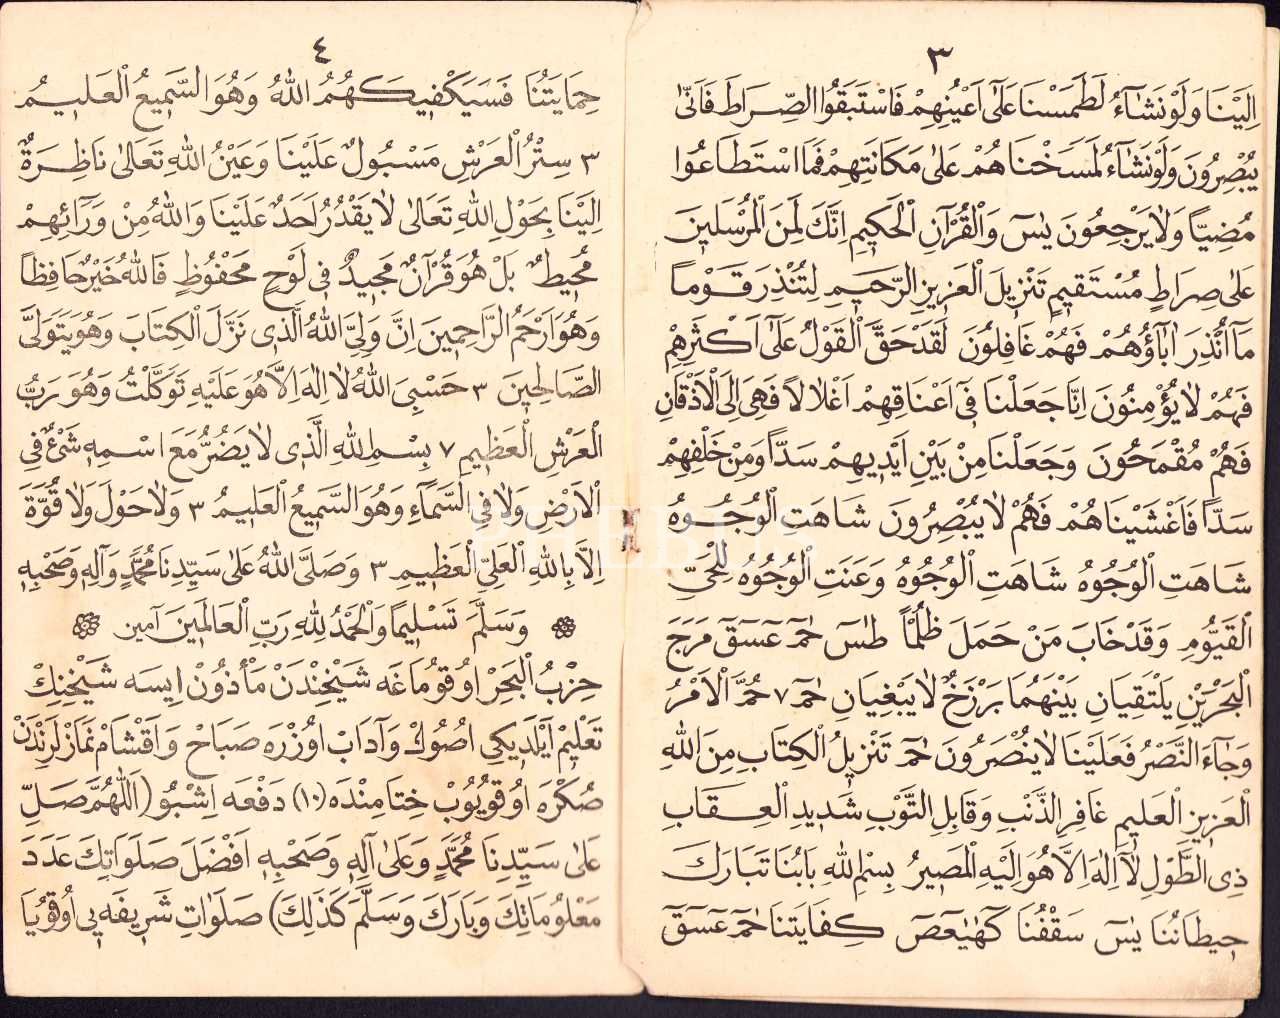 ٣
اِلَيْنَا وَلَوْ نَشَآءُ لَطَمَسْنَا عَلٰٓى اَعْيُنِهِمْ فَاسْتَبَقُوا الصِّرَاطَ فَاَنّٰى
يُبْصِرُونَ وَلَوْ نَشَآءُ لَمَسَخْنَاهُمْ عَلٰى مَكَانَتِهِمْ فَمَا اسْتَطَاعُوا
مُضِيًّا وَلَا يَرْجِعُونَ يٰسٓ وَالْقُرْآنِ الْحَكِيمِ اِنَّكَ لَمِنَ الْمُرْسَلِينَ
عَلٰى صِرَاطٍ مُسْتَقِيمٍ تَنْزِيلَ الْعَزِيزِ الرَّحِيمِ لِتُنْذِرَ قَوْمًا
مَآ اُنْذِرَ اٰبَآؤُهُمْ فَهُمْ غَافِلُونَ لَقَدْ حَقَّ الْقَوْلُ عَلٰٓى اَكْثَرِهِمْ
فَهُمْ لَا يُؤْمِنُونَ اِنَّا جَعَلْنَا فِٓى اَعْنَاقِهِمْ اَغْلَالًا فَهِىَ اِلَى الْاَذْقَانِ
فَهُمْ مُقْمَحُونَ وَجَعَلْنَا مِنْ بَيْنِ اَيْدِيهِمْ سَدًّا وَمِنْ خَلْفِهِمْ
سَدًّا فَاَغْشَيْنَاهُمْ فَهُمْ لَا يُبْصِرُونَ شَاهَتِ الْوُجُوهُ
شَاهَتِ الْوُجُوهُ شَاهَتِ الْوُجُوهُ وَعَنَتِ الْوُجُوهُ لِلْحَىِّ
الْقَيُّومِ وَقَدْ خَابَ مَنْ حَمَلَ ظُلْمًا طٰسٓ حٰمٓ عٓسٓقٓ مَرَجَ
الْبَحْرَيْنِ يَلْتَقِيَانِ بَيْنَهُمَا بَرْزَخٌ لَا يَبْغِيَانِ حٰمٓ ٧ حُمَّ الْاَمْرُ
وَجَآءَ النَّصْرُ فَعَلَيْنَا لَا يُنْصَرُونَ حٰمٓ تَنْزِيلُ الْكِتَابِ مِنَ اللّٰهِ
الْعَزِيزِ الْعَلِيمِ غَافِرِ الذَّنْبِ وَقَابِلِ التَّوْبِ شَدِيدِ الْعِقَابِ
ذِى الطَّوْلِ لَآ اِلٰهَ اِلَّا هُوَ اِلَيْهِ الْمَصِيرُ بِسْمِ اللّٰهِ بَابُنَا تَبَارَكَ
حِيطَانُنَا يٰسٓ سَقْفُنَا كٓهٰيٰعٓصٓ كِفَايَتُنَا حٰمٓ عٓسٓقٓ
٤
حِمَايَتُنَا فَسَيَكْفِيكَهُمُ اللّٰهُ وَهُوَ السَّمِيعُ الْعَلِيمُ
٣ سِتْرُ الْعَرْشِ مَسْبُولٌ عَلَيْنَا وَعَيْنُ اللّٰهِ تَعَالٰى نَاظِرَةٌ
اِلَيْنَا بِحَوْلِ اللّٰهِ تَعَالٰى لَا يَقْدُرُ اَحَدٌ عَلَيْنَا وَاللّٰهُ مِنْ وَرَآئِهِمْ
مُحِيطٌ بَلْ هُوَ قُرْآنٌ مَجِيدٌ فِى لَوْحٍ مَحْفُوظٍ فَاللّٰهُ خَيْرٌ حَافِظًا
وَهُوَ اَرْحَمُ الرَّاحِمِينَ اِنَّ وَلِيِّىَ اللّٰهُ الَّذِى نَزَّلَ الْكِتَابَ وَهُوَ يَتَوَلَّى
الصَّالِحِينَ ٣ حَسْبِىَ اللّٰهُ لَا اِلٰهَ اِلَّا هُوَ عَلَيْهِ تَوَكَّلْتُ وَهُوَ رَبُّ
الْعَرْشِ الْعَظِيمِ ٧ بِسْمِ اللّٰهِ الَّذِى لَا يَضُرُّ مَعَ اسْمِهِ شَىْءٌ فِى
الْاَرْضِ وَلَا فِى السَّمَآءِ وَهُوَ السَّمِيعُ الْعَلِيمُ ٣ وَلَا حَوْلَ وَلَا قُوَّةَ
اِلَّا بِاللّٰهِ الْعَلِىِّ الْعَظِيمِ ٣ وَصَلَّى اللّٰهُ عَلٰى سَيِّدِنَا مُحَمَّدٍ وَآلِهِ وَصَحْبِهِ
وَسَلَّمَ تَسْلِيمًا وَالْحَمْدُ لِلّٰهِ رَبِّ الْعَالَمِينَ آمين
حِزْبُ الْبَحْرِ اوُقوُمَاغَه شَيْخِنْدَنْ مَأْذُونْ اِيسَه شَيْخِنِكْ
تَعْلِيمْ اَيْلَدِيكِى اصُولْ وَآدَابْ اوُزْرَه صَبَاحْ وَاَقْشَامْ نَمَازْلَرِنْدَنْ
صُكْرَه اوُقوُيُوبْ خِتَامِنْدَه (١٠) دَفْعَه اِشْبُو (اَللّٰهُمَّ صَلِّ
عَلٰى سَيِّدِنَا مُحَمَّدٍ وَعَلٰى آلِهِ وَصَحْبِهِ اَفْضَلَ صَلَوَاتِكَ عَدَدَ
مَعْلُومَاتِكَ وَبَارَكَ وَسَلَّمَ كَذٰلِكَ) صَلَوَاتِ شَرِيفَه يِى اوُقوُيَا
PHEBUS